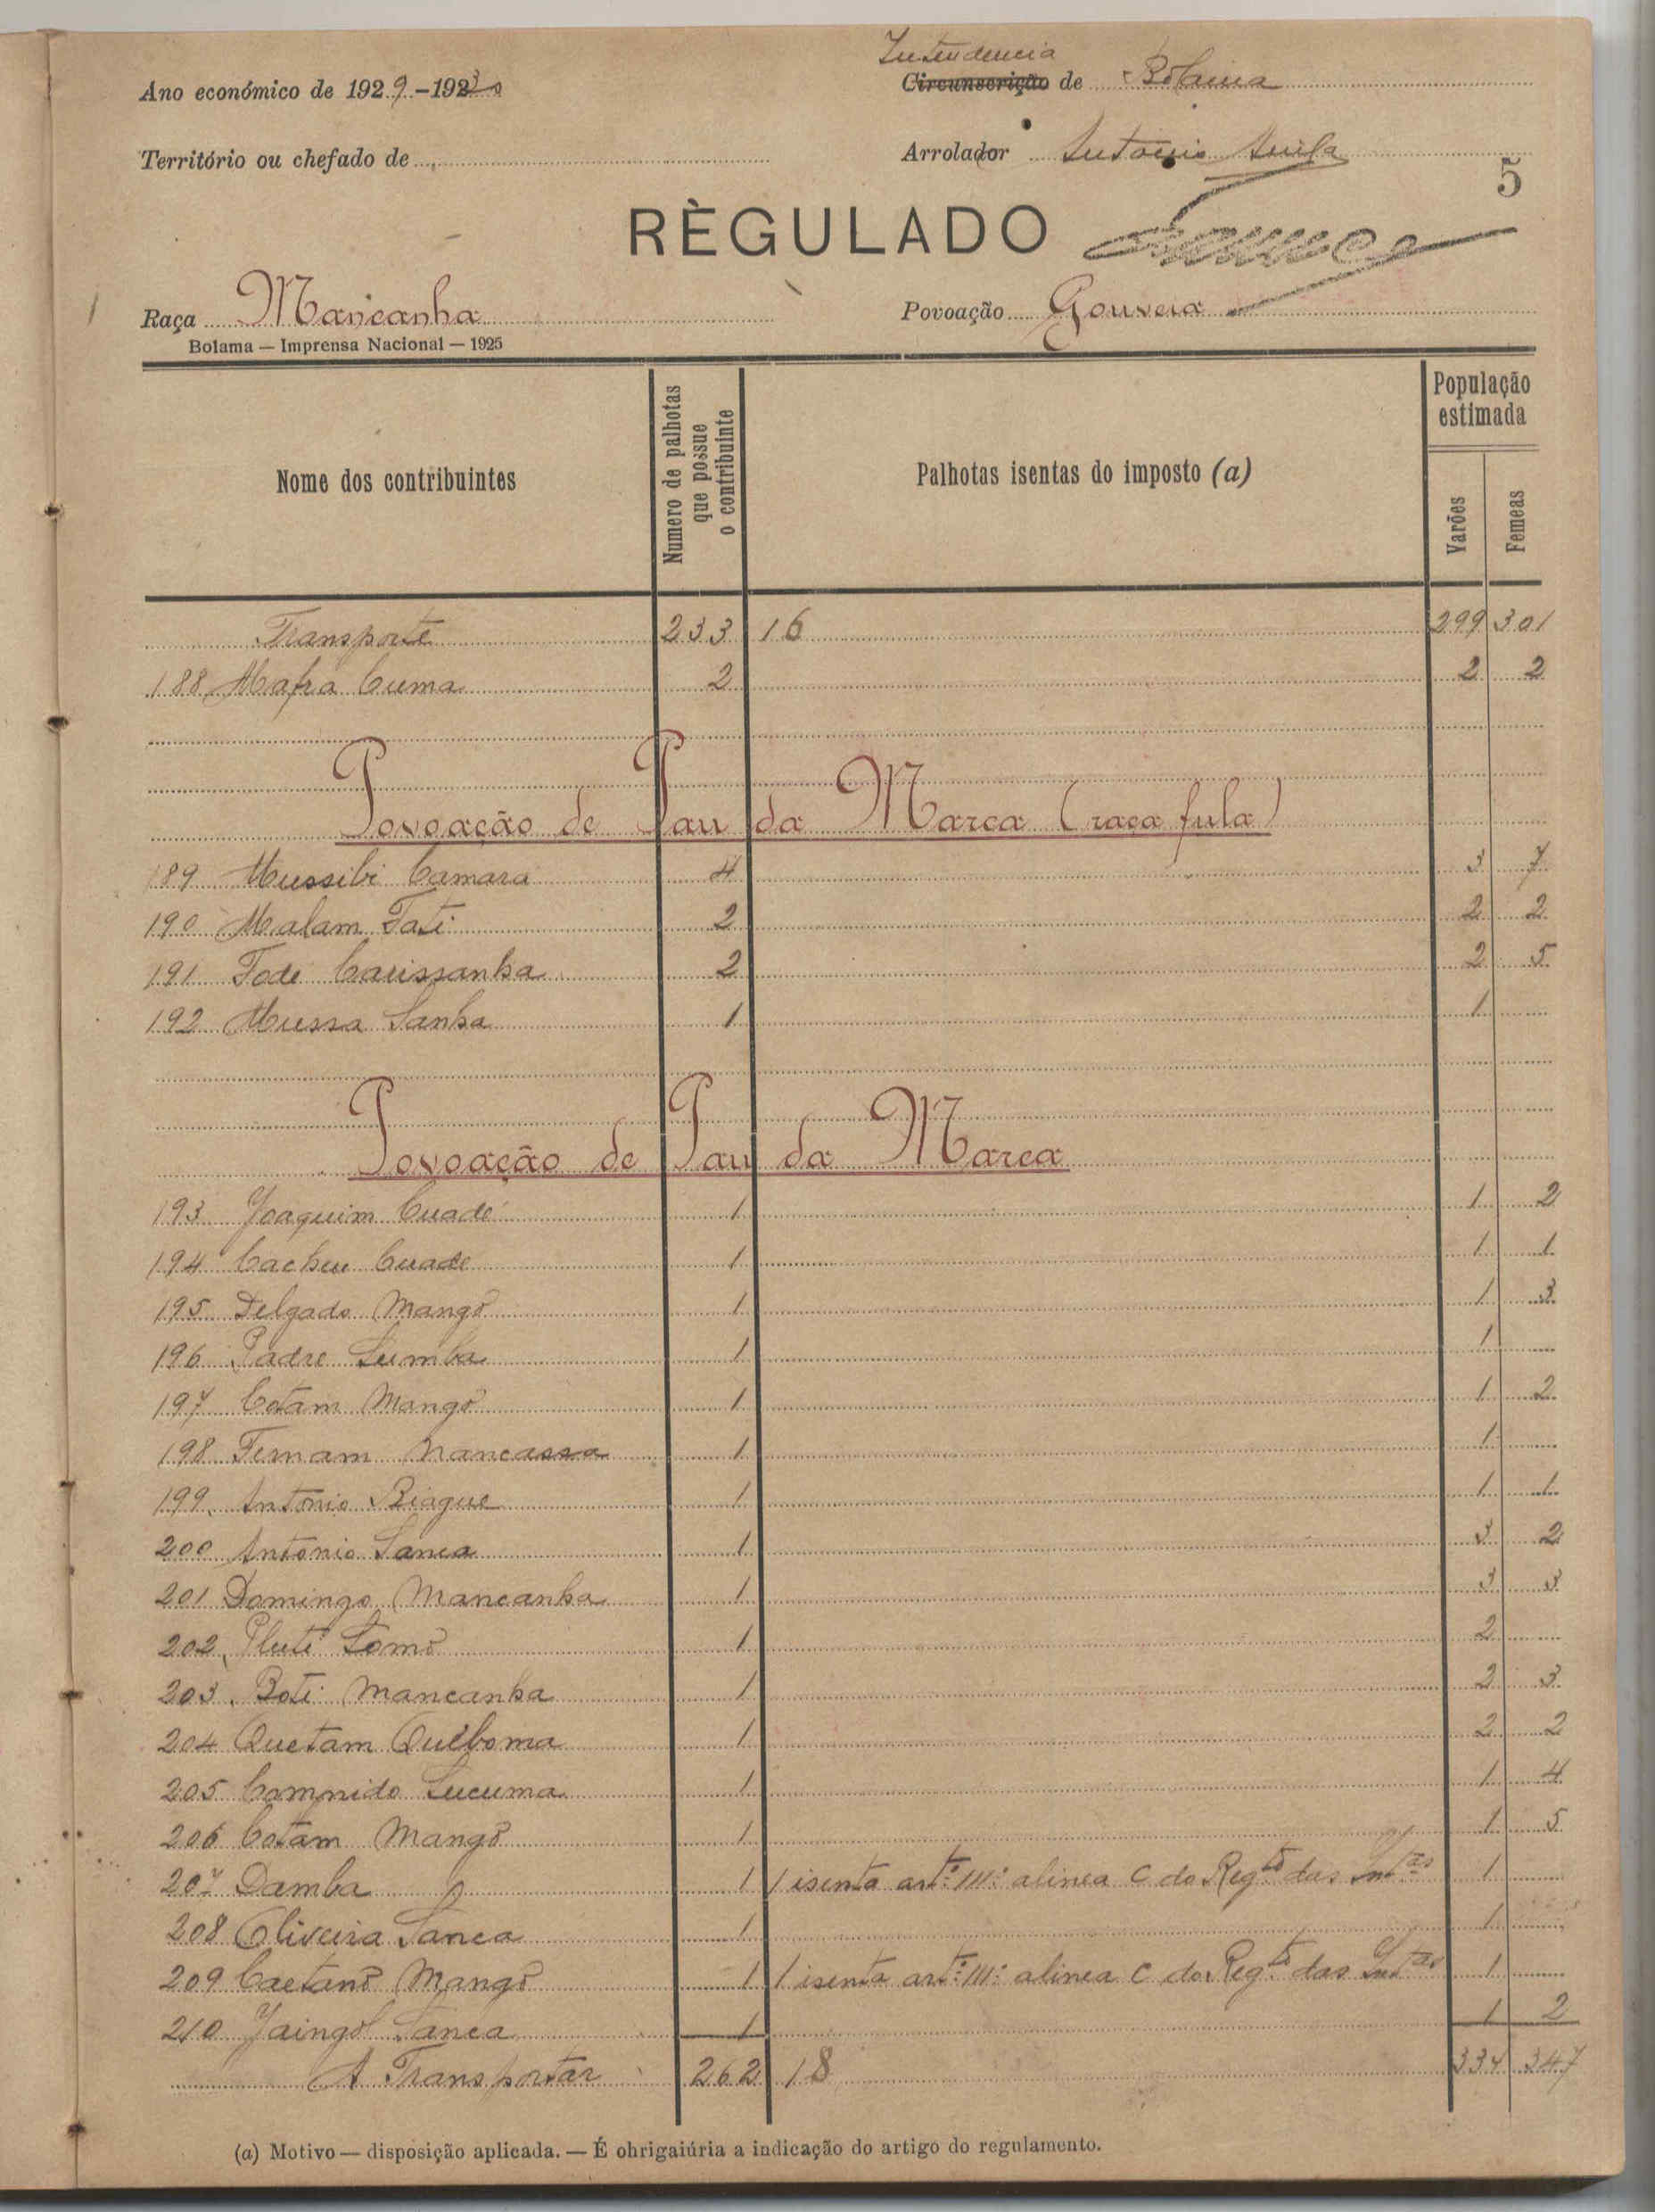 Ano económico de 1929-1930
Intendencia
Circunscrição de Bolama
Território ou chefado de
Arrolador Antonio Avila
5
RÈGULADO
Raça Mancanha
Povoação Gouveia
Bolama — Imprensa Nacional — 1925
Nome dos contribuintes
Numero de palhotas que possue o contribuinte
Palhotas isentas do imposto (a)
População estimada
Varões
Femeas
Transporte 233 16 299 301
188 Mafra Cuma 2 2 2
Povoação de Pau da Marca (raça fula)
189 Mussibi Camara 4 3 7
190 Malam Fati 2 2 2
191 Fodé Caussanha 2 2 5
192 Mussa Sanha 1 1
Povoação de Pau da Marca
193 Joaquim Cuadé 1 1 2
194 Cacheu Cuade 1 1 1
195 Delgado Mangô 1 1 3
196 Padre Lumba 1 1
197 Cotam Mangô 1 1 2
198 Fernam Nancassa 1 1
199 Antonio Biague 1 1 1
200 Antonio Sanca 1 3 2
201 Domingo Mancanha 1 3 3
202 Pluti Lomô 1 2
203 Boti Mancanha 1 2 3
204 Quetam Quiboma 1 2 2
205 Comprido Lucuma 1 1 4
206 Cotam Mangô 1 1 5
207 Damba 1 1 isenta artº 111º alinea C do Regtº das 1
208 Oliveira Sanca 1 1
209 Caetano Mangô 1 1 isenta artº 111º alinea C do Regtº das 1
210 Jaingol Sanca 1 1 2
A Transportar 262 18 334 347
(a) Motivo — disposição aplicada. — É ohrigaiúria a indicação do artigo do regulamento.